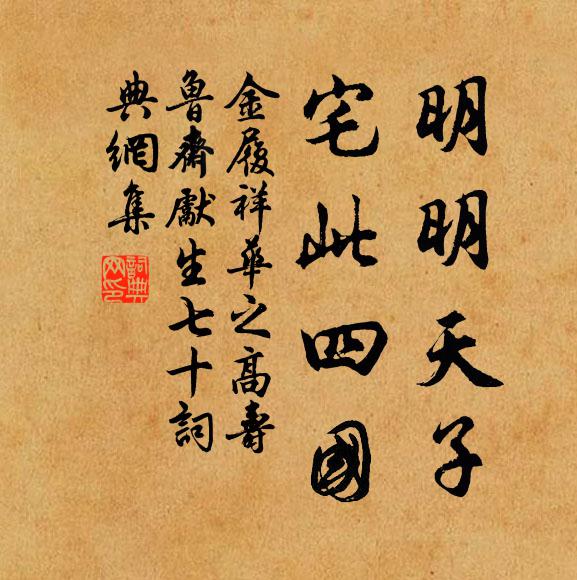 明明天子
宅此四國
金履祥華之高壽
魯齋獻生七十詞
典網集
詞典网印